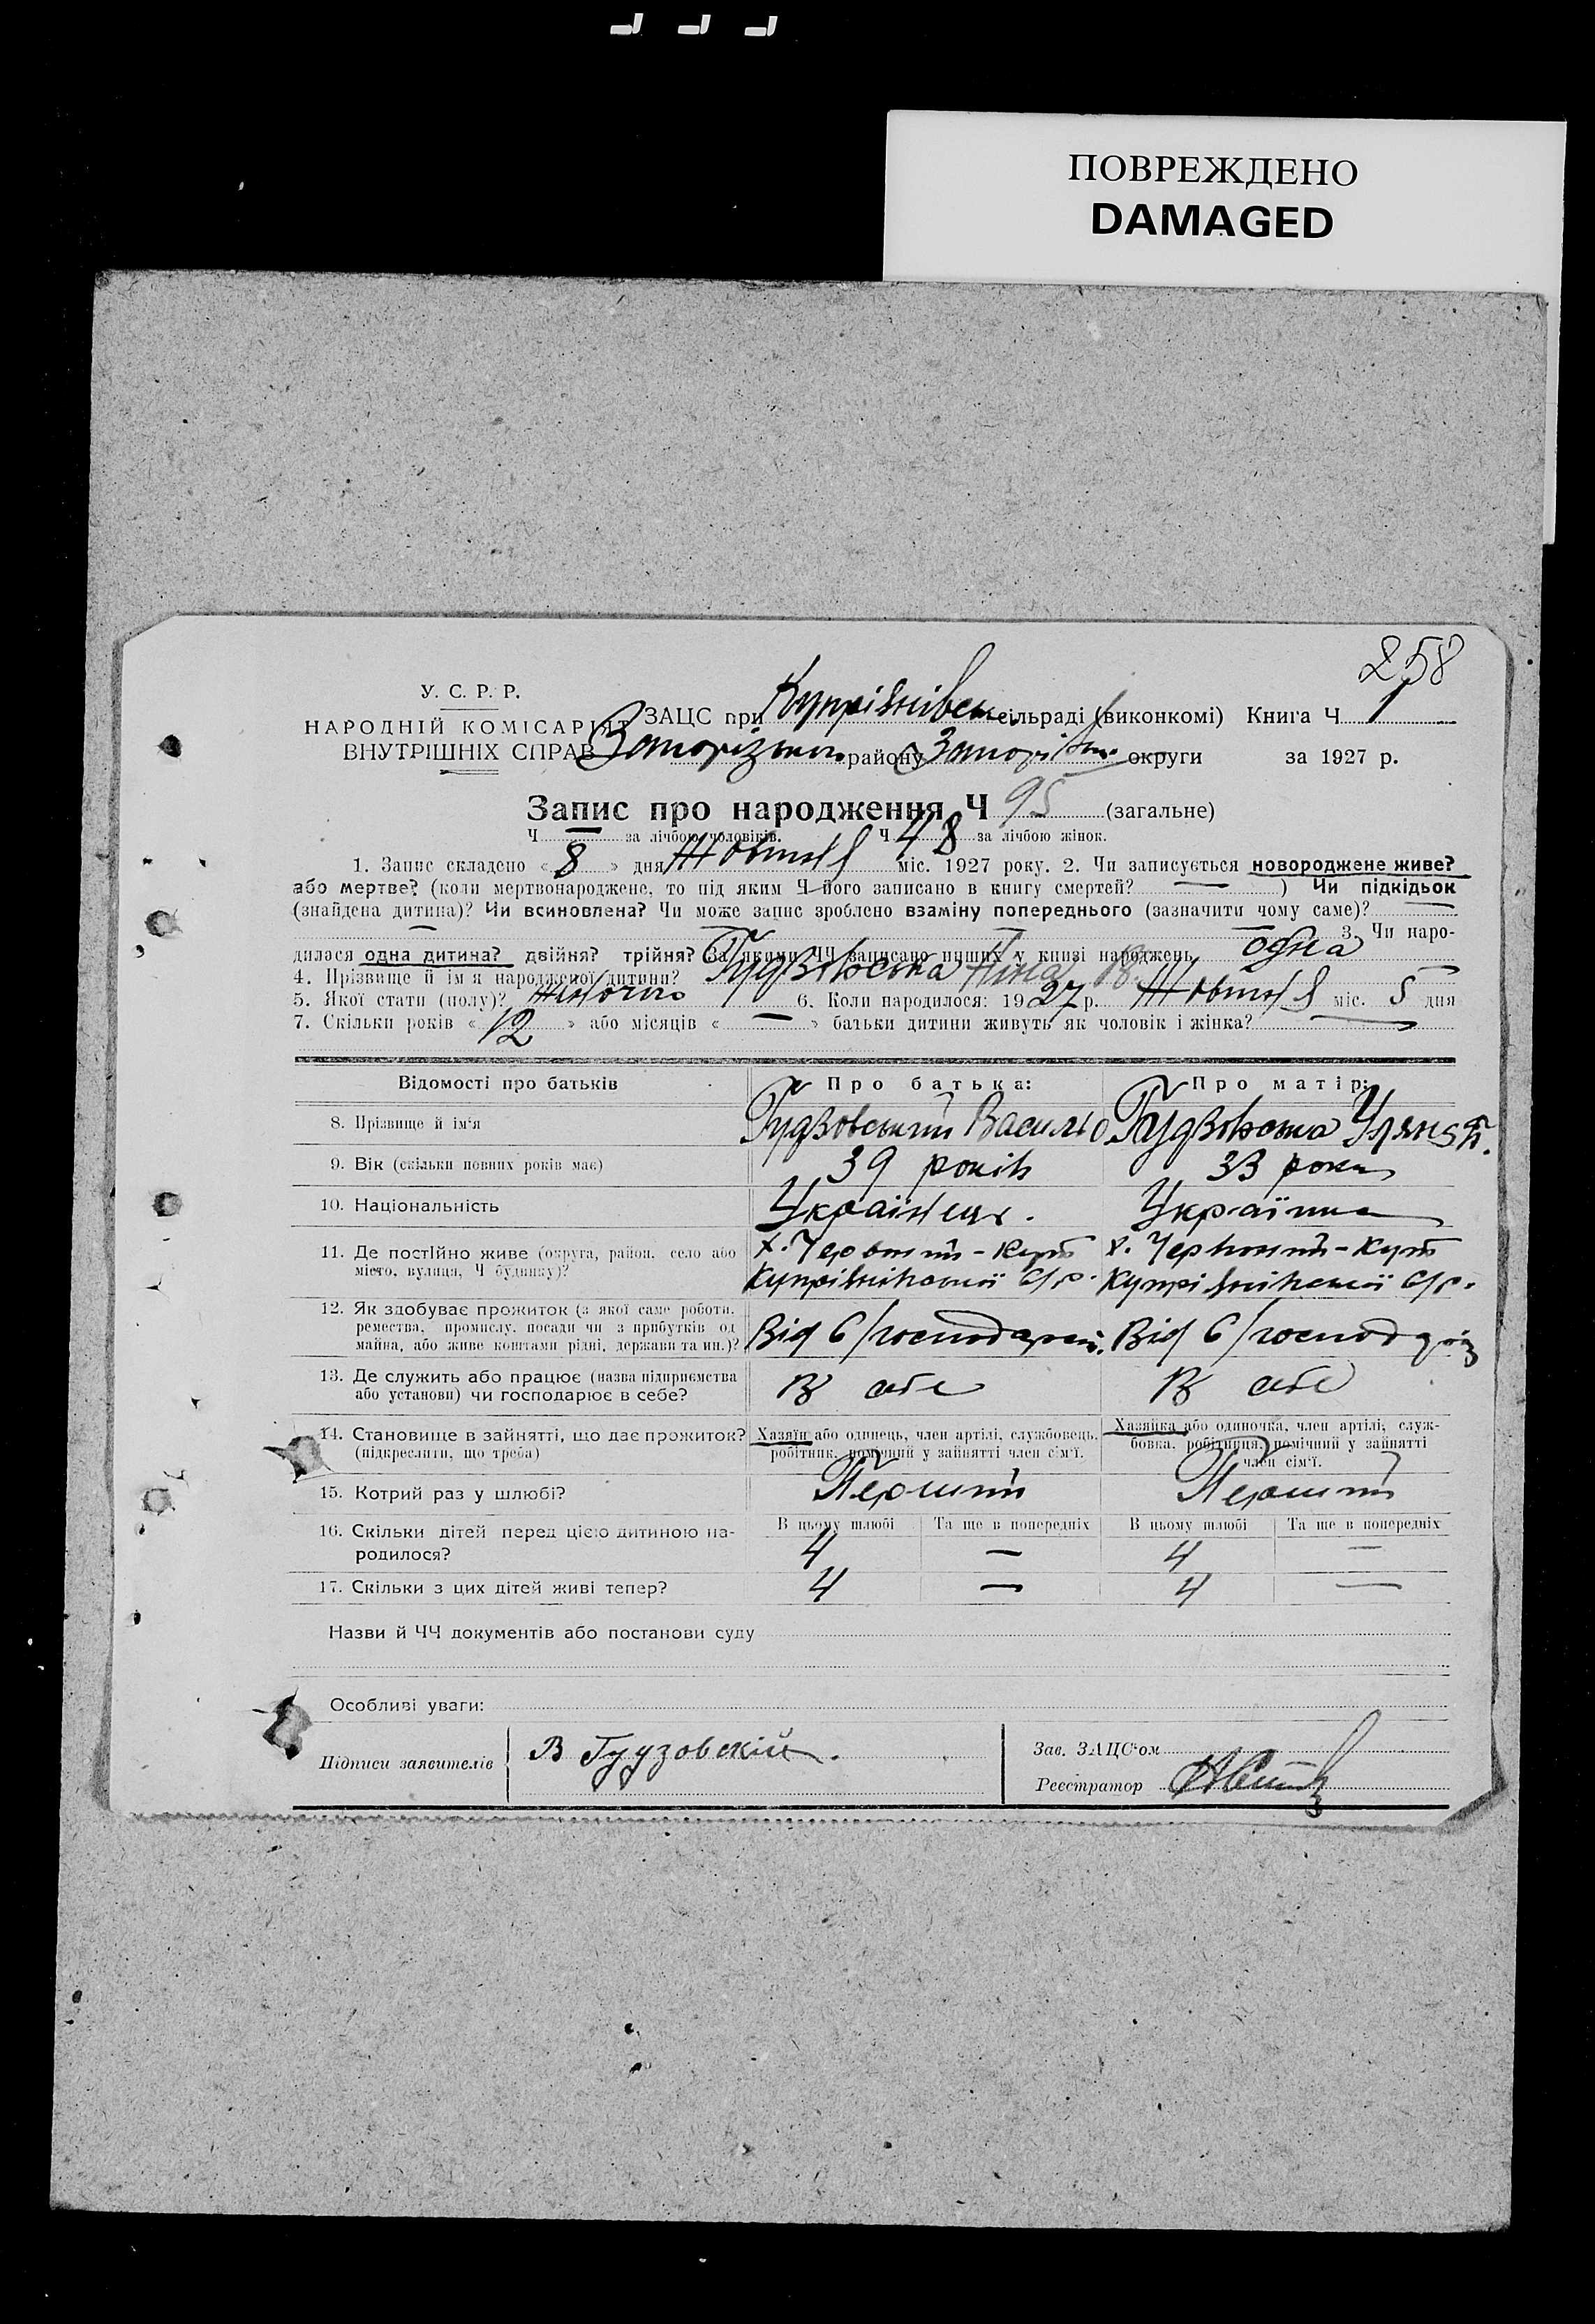 ПОВРЕЖДЕНО
DAMAGED
258
У. С. Р. Р.
НАРОДНІЙ КОМІСАРІЯТ
ВНУТРІШНІХ СПРАВ
ЗАЦС при Купріянівськ. сільраді (виконкомі) Книга Ч 1
Запорізького району Запоріжж. округи за 1927 р.
Запис про народження Ч 95 (загальне)
Ч — за лічбою чоловіків. Ч 48 за лічбою жінок.
1. Запис складено « 8 » дня Жовтня міс. 1927 року. 2. Чи записується новороджене живе?
або мертве? (коли мертвонароджене, то під яким Ч його записано в книгу смертей? — ) Чи підкідьок
(знайдена дитина)? Чи всиновлена? Чи може запис зроблено взаміну попереднього (зазначити чому саме)? —
— — 3. Чи наро-
дилася одна дитина? двійня? трійня? За якими ЧЧ записано инших у книзі народжень одна
4. Прізвище й ім'я народженої дитини? Гудзовська Ніна В. —
5. Якої стати (полу)? Жіночого 6. Коли народилося: 1927 р. Жовтня міс. 5 дня
7. Скільки років « 12 » або місяців « — » батьки дитини живуть як чоловік і жінка? —
Відомості про батьків Про батька: Про матір:
8. Прізвище й ім'я Гудзовський Василь Гудзовська Уляна
9. Вік (скільки повних років має) 39 років 33 роки
10. Національність Українець. Українка
11. Де постійно живе (округа, район, село або х. Червоний-Кут х. Червоний-Кут
місто, вулиця, Ч будинку)? Купріянівської с/р. Купріянівської с/р.
12. Як здобуває прожиток (з якої саме роботи,
ремества, промислу, посади чи з прибутків од
майна, або живе коштами рідні, держави та ин.)? Від с/господарс. Від с/господар
13. Де служить або працює (назва підприємства
або установи) чи господарює в себе? В себе В себе
14. Становище в зайнятті, що дає прожиток? Хазяїн або одинець, член артілі, службовець, Хазяйка або одиночка, член артілі, служ-
(підкреслити, що треба) робітник, помічний у зайнятті член сім'ї. бовка, робітниця, помічний у зайнятті
член сім'ї.
15. Котрий раз у шлюбі? Перший Перший
16. Скільки дітей перед цією дитиною на- В цьому шлюбі Та ще в попередніх В цьому шлюбі Та ще в попередніх
родилося? 4 — 4 —
17. Скільки з цих дітей живі тепер? 4 — 4 —
Назви й ЧЧ документів або постанови суду
Особливі уваги:
Підписи заявителів В Гудзовскій. Зав. ЗАЦС'ом
Реєстратор